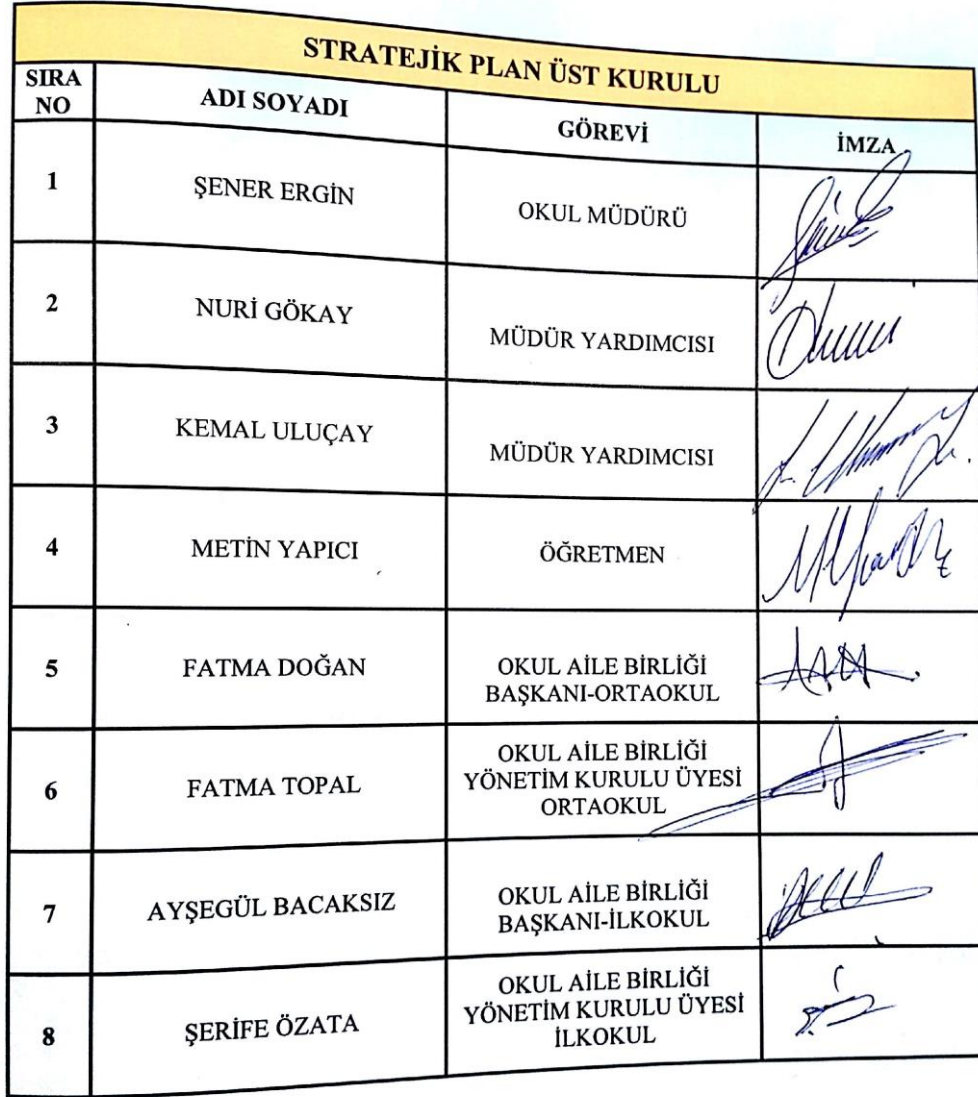 STRATEJİK PLAN ÜST KURULU
SIRA NO ADI SOYADI GÖREVİ İMZA
1 ŞENER ERGİN OKUL MÜDÜRÜ
2 NURİ GÖKAY MÜDÜR YARDIMCISI
3 KEMAL ULUÇAY MÜDÜR YARDIMCISI
4 METİN YAPICI ÖĞRETMEN
5 FATMA DOĞAN OKUL AİLE BİRLİĞİ
BAŞKANI-ORTAOKUL
6 FATMA TOPAL OKUL AİLE BİRLİĞİ
YÖNETİM KURULU ÜYESİ
ORTAOKUL
7 AYŞEGÜL BACAKSIZ OKUL AİLE BİRLİĞİ
BAŞKANI-İLKOKUL
8 ŞERİFE ÖZATA OKUL AİLE BİRLİĞİ
YÖNETİM KURULU ÜYESİ
İLKOKUL